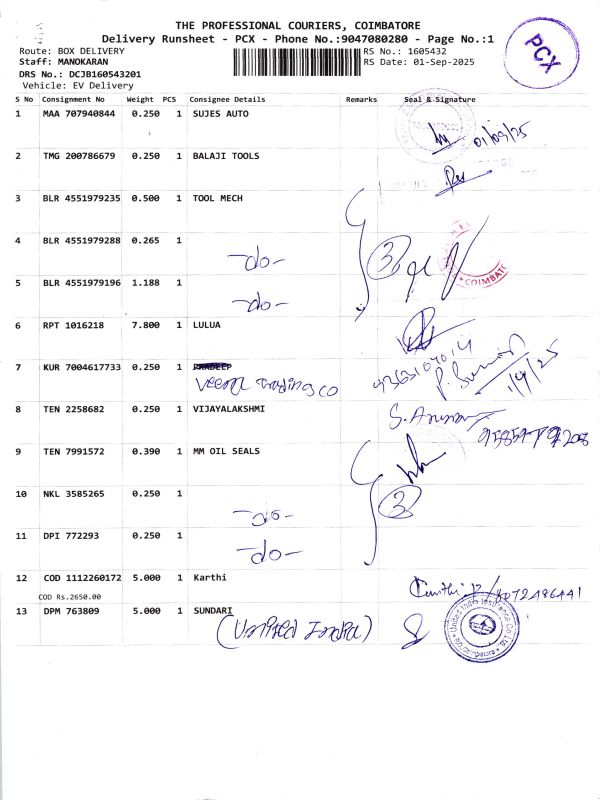 THE PROFESSIONAL COURIERS, COIMBATORE
Delivery Runsheet - PCX - Phone No.:9047080280 - Page No.:1
Route: BOX DELIVERY
RS No.: 1605432
Staff: MANOKARAN
RS Date: 01-Sep-2025
DRS No.: DCJB160543201
Vehicle: EV Delivery
PCX
S No Consignment No Weight PCS Consignee Details Remarks Seal & Signature
1 MAA 707940844 0.250 1 SUJES AUTO
01/09/25
2 TMG 200786679 0.250 1 BALAJI TOOLS
3 BLR 4551979235 0.500 1 TOOL MECH
4 BLR 4551979288 0.265 1
-do- 3
COIMBATO
5 BLR 4551979196 1.188 1
-do-
6 RPT 1016218 7.800 1 LULUA
7 KUR 7004617733 0.250 1 PRADEEP
Veeral Trading co
1/9/25
8 TEN 2258682 0.250 1 VIJAYALAKSHMI
9 TEN 7991572 0.390 1 MM OIL SEALS
10 NKL 3585265 0.250 1
-do- 3
11 DPI 772293 0.250 1
-do-
12 COD 1112260172 5.000 1 Karthi
COD Rs.2650.00
8072496441
13 DPM 763809 5.000 1 SUNDARI
(United India)
United India Insurance Co. Ltd.
Coimbatore